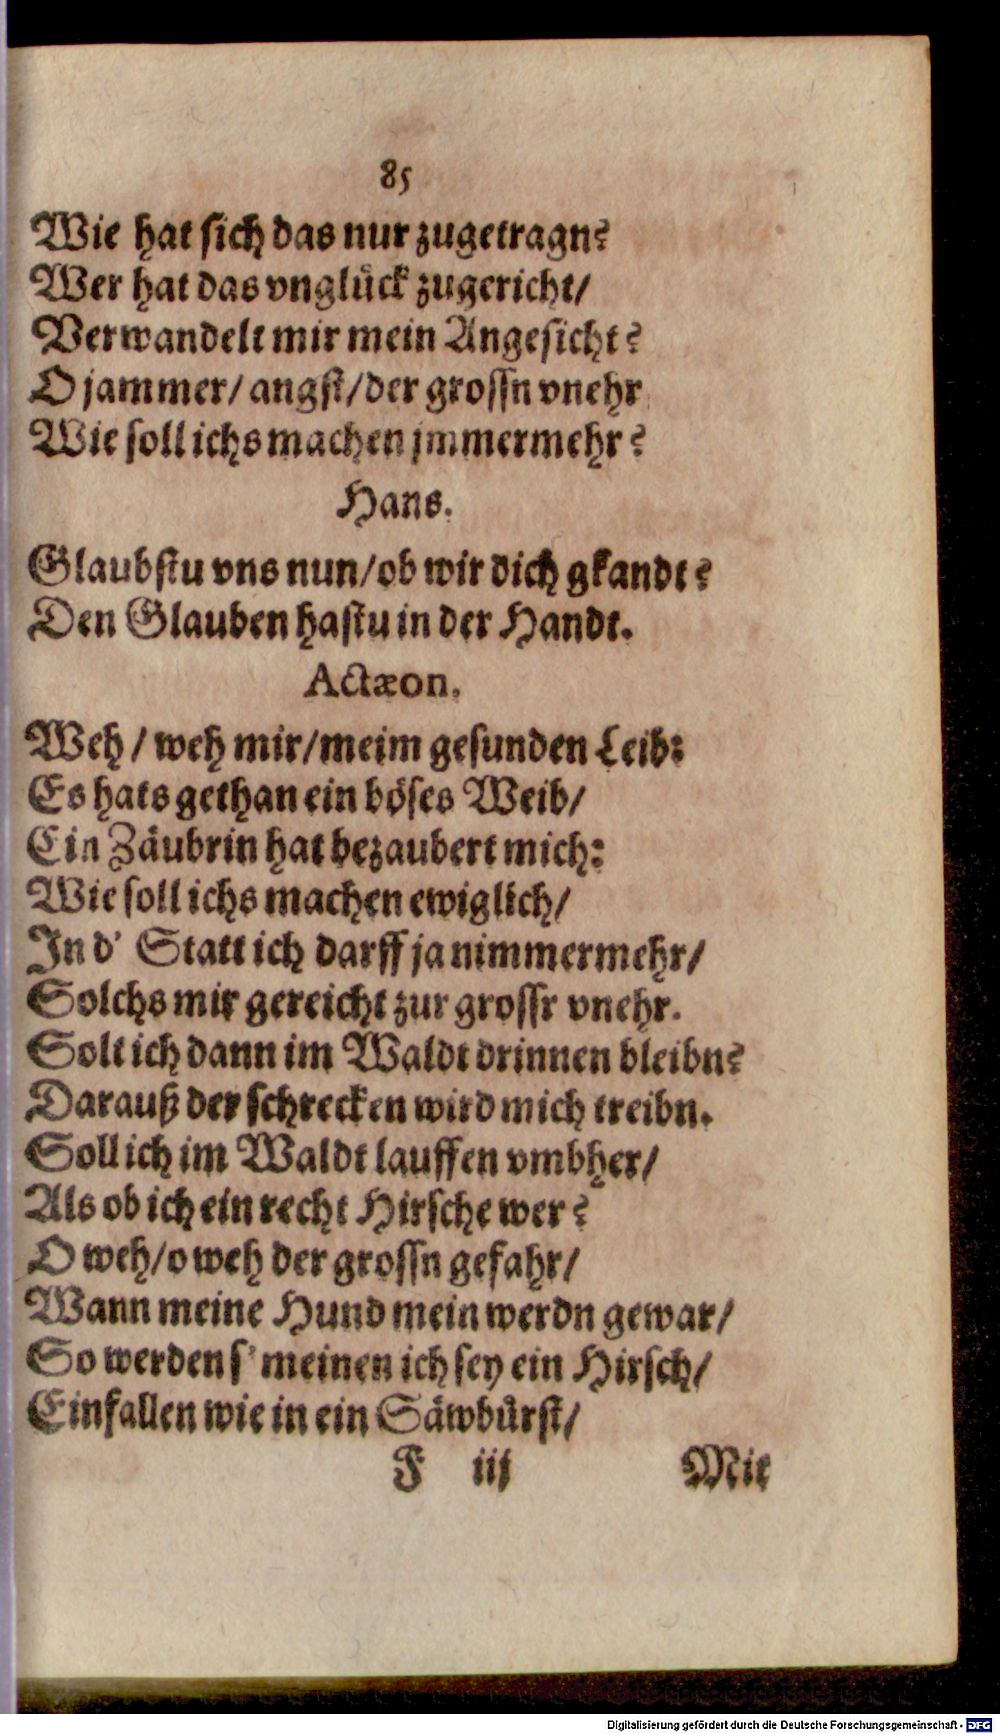 85
Wie hat sich das nur zugetragn?
Wer hat das vnglück zugericht/
Verwandelt mir mein Angesicht?
O jammer/ angst/ der grossn vnehr
Wie soll ichs machen jmmermehr?
Hans.
Glaubstu vns nun/ ob wir dich gkandt?
Den Glauben hastu in der Handt.
Actæon.
Weh/ weh mir/ meim gesunden Leib:
Es hats gethan ein böses Weib/
Ein Zäubrin hat bezaubert mich:
Wie soll ichs machen ewiglich/
In d' Statt ich darff ja nimmermehr/
Solchs mir gereicht zur grossr vnehr.
Solt ich dann im Waldt drinnen bleibn?
Darauß der schrecken wird mich treibn.
Soll ich im Waldt lauffen vmbher/
Als ob ich ein recht Hirsche wer?
O weh/ o weh der grossn gefahr/
Wann meine Hund mein werdn gewar/
So werden s' meinen ich sey ein Hirsch/
Einfallen wie in ein Säwbürst/
F iij Mit
Digitalisierung gefördert durch die Deutsche Forschungsgemeinschaft - DFG